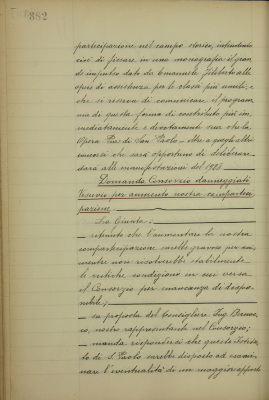 382
partecipazione nel campo storico, intendendo
cioè di fissare in una monografia il gran-
de impulso dato da Emanuele Filiberto alle
opere di assistenza per le classi più umili, e
che si riserva di comunicare il program-
ma di questa forma di contributo più im-
mediatamente e direttamente non che la
Opera Pia di San Paolo oltre a quegli altri
che sarà opportuno di delibera-
alle manifestazioni del 1928.
Domanda Consorzio danneggiati
Vesuvio per aumento nostra compartecipa-
zione
La Giunta:
ritenuto che l'aumentare la nostra
compartecipazione sarebbe gravoso per noi,
mentre non risolverebbe stabilmente
le critiche condizioni in cui versa
il Consorzio per mancanza di dispo-
nibile;
su proposta del Consigliere Ing. 
co, nostro rappresentante nel Consorzio;
manda rispondersi che questo Istitu-
to di S. Paolo sarebbe disposto ad esami-
nare l'eventualità di un maggior apporto